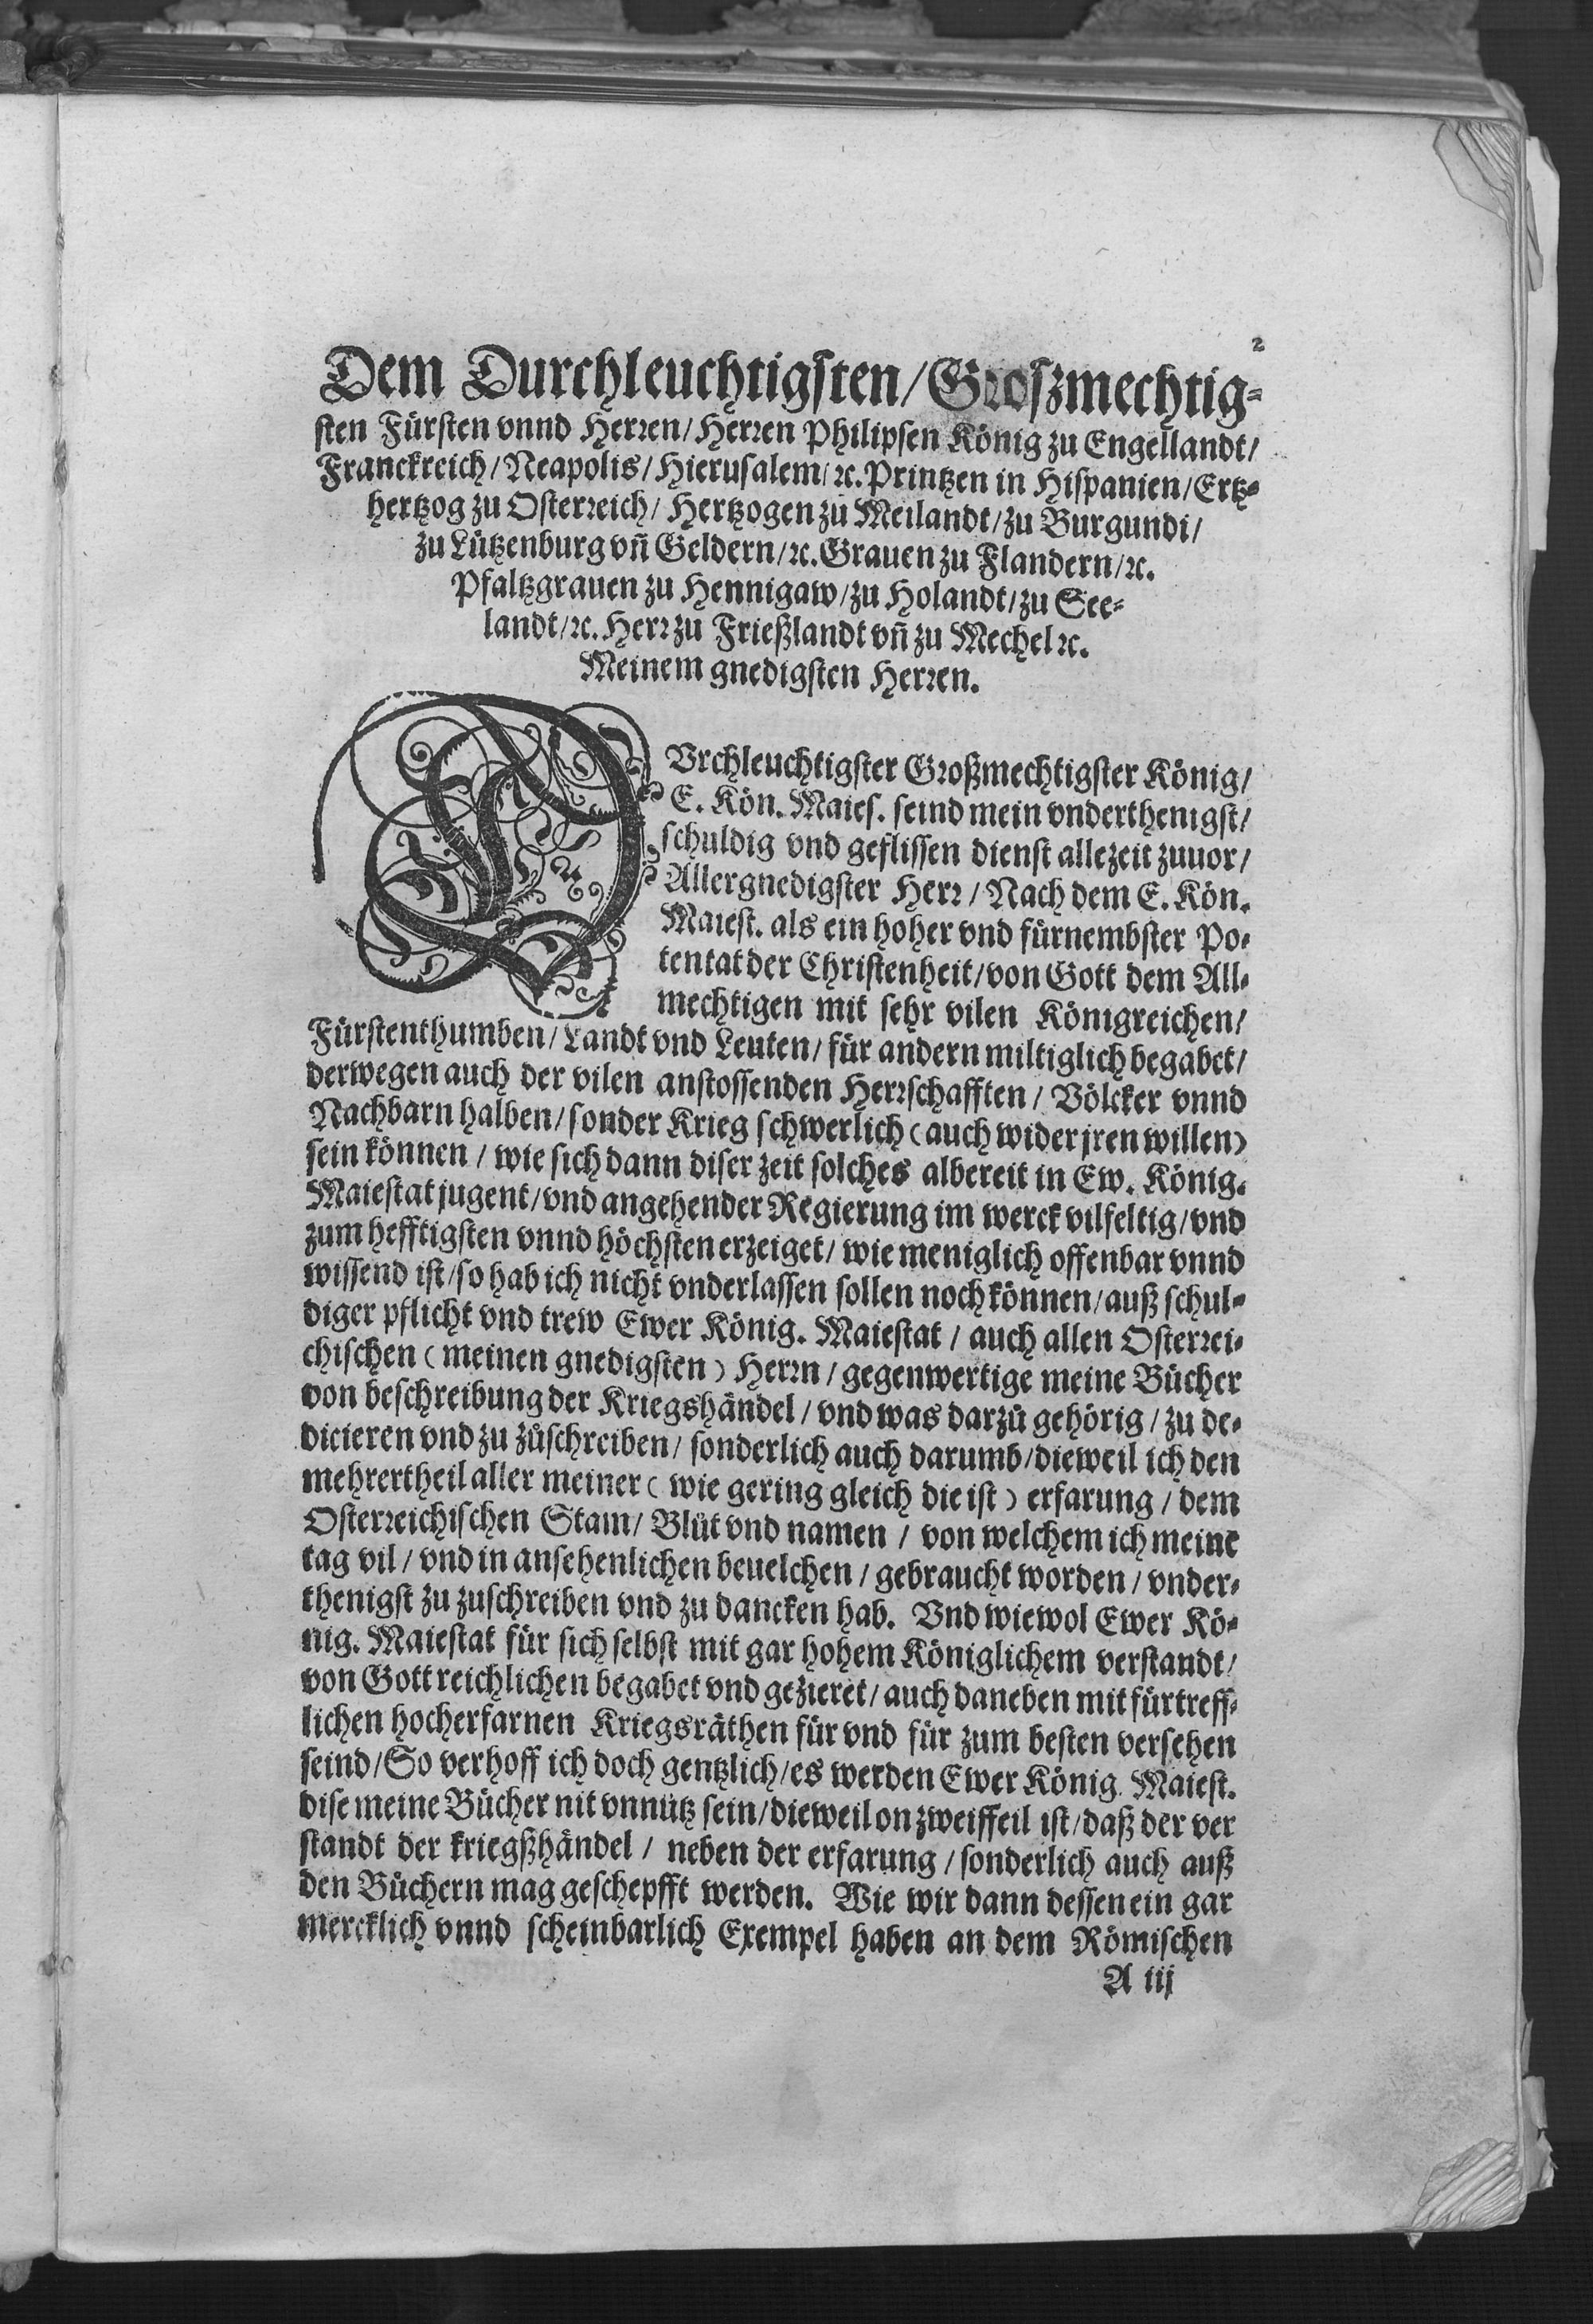 2
Dem Durchleuchtigsten/Groszmechtig-
sten Fürsten vnnd Herren/Herren Philipsen König zu Engellandt/
Franckreich/Neapolis/Hierusalem/ꝛc. Printzen in Hispanien/Ertz-
hertzog zu Osterreich/Hertzogen zů Meilandt/zu Burgundi/
zu Lützenburg vñ Geldern/ꝛc. Grauen zu Flandern/ꝛc.
Pfaltzgrauen zu Hennigaw/zu Holandt/zu See-
landt/ꝛc. Herr zu Frießlandt vñ zu Mechel ꝛc.
Meinem gnedigsten Herren.
DVrchleuchtigster Großmechtigster König/
E. Kön. Maies. seind mein vnderthenigst/
schuldig vnd geflissen dienst allezeit zuuor/
Allergnedigster Herr/Nach dem E. Kön.
Maiest. als ein hoher vnd fürnembster Po-
tentat der Christenheit/von Gott dem All-
mechtigen mit sehr vilen Königreichen/
Fürstenthumben/Landt vnd Leuten/für andern miltiglich begabet/
derwegen auch der vilen anstossenden Herrschafften/Völcker vnnd
Nachbarn halben/sonder Krieg schwerlich (auch wider jren willen)
sein können/wie sich dann diser zeit solches albereit in Ew. König.
Maiestat jugent/vnd angehender Regierung im werck vilfeltig/vnd
zum hefftigsten vnnd höchsten erzeiget/wie meniglich offenbar vnnd
wissend ist/so hab ich nicht vnderlassen sollen noch können/auß schul-
diger pflicht vnd trew Ewer König. Maiestat/auch allen Osterrei-
chischen (meinen gnedigsten) Herrn/gegenwertige meine Bücher
von beschreibung der Kriegshändel/vnd was darzů gehörig/zu de-
dicieren vnd zu zůschreiben/sonderlich auch darumb/dieweil ich den
mehrertheil aller meiner (wie gering gleich die ist) erfarung/dem
Osterreichischen Stam/Blůt vnd namen/von welchem ich meine
tag vil/vnd in ansehenlichen beuelchen/gebraucht worden/vnder-
thenigst zu zuschreiben vnd zu dancken hab. Vnd wiewol Ewer Kö-
nig. Maiestat für sich selbst mit gar hohem Königlichem verstandt/
von Gott reichlichen begabet vnd gezieret/auch daneben mit fürtreff-
lichen hocherfarnen Kriegsräthen für vnd für zum besten versehen
seind/So verhoff ich doch gentzlich/es werden Ewer König. Maiest.
dise meine Bücher nit vnnutz sein/dieweil on zweiffeil ist/daß der ver
standt der kriegßhändel/neben der erfarung/sonderlich auch auß
den Büchern mag geschepfft werden. Wie wir dann dessen ein gar
mercklich vnnd scheinbarlich Exempel haben an dem Römischen
A iij